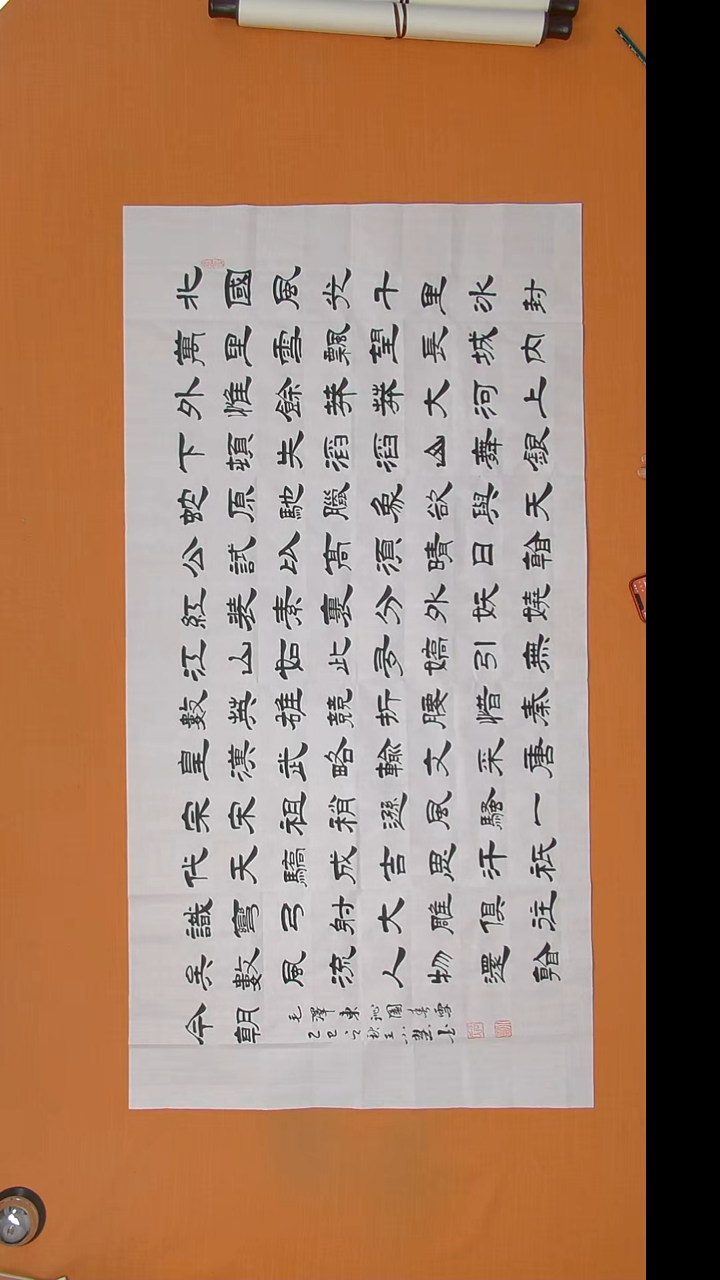 北國風光千里冰封
萬里雪飄望長城内
外惟餘莽莽大河上
下頓失滔滔山舞銀
蛇原馳臘象欲與天
公試以高須晴日看
紅裝素裹分外妖嬈
江山如此多嬌引無
數英雄競折腰惜秦
皇漢武略輸文采唐
宗宋祖稍遜風騷一
代天驕成吉思汗祇
識彎弓射大雕俱往
矣數風流人物還看
今朝
毛澤東沁園春雪
乙巳之秋王小書